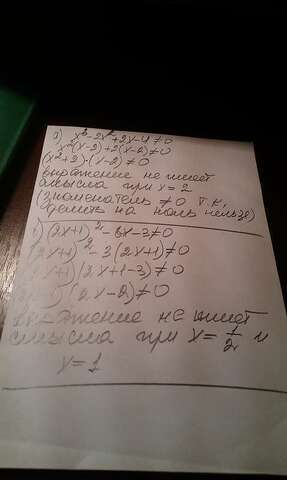 x³-2x²+2x-4≠0
x²(x-2)+2(x-2)≠0
(x²+2)·(x-2)≠0
выражение не имеет
смысла при x=2
(знаменатель ≠0 т.к.
делить на ноль нельзя)
(2x+1)²-6x-3≠0
(2x+1)²-3(2x+1)≠0
(2x+1)(2x+1-3)≠0
(2x-2)≠0
выражение не имеет
смысла при x=1/2 и
x=1